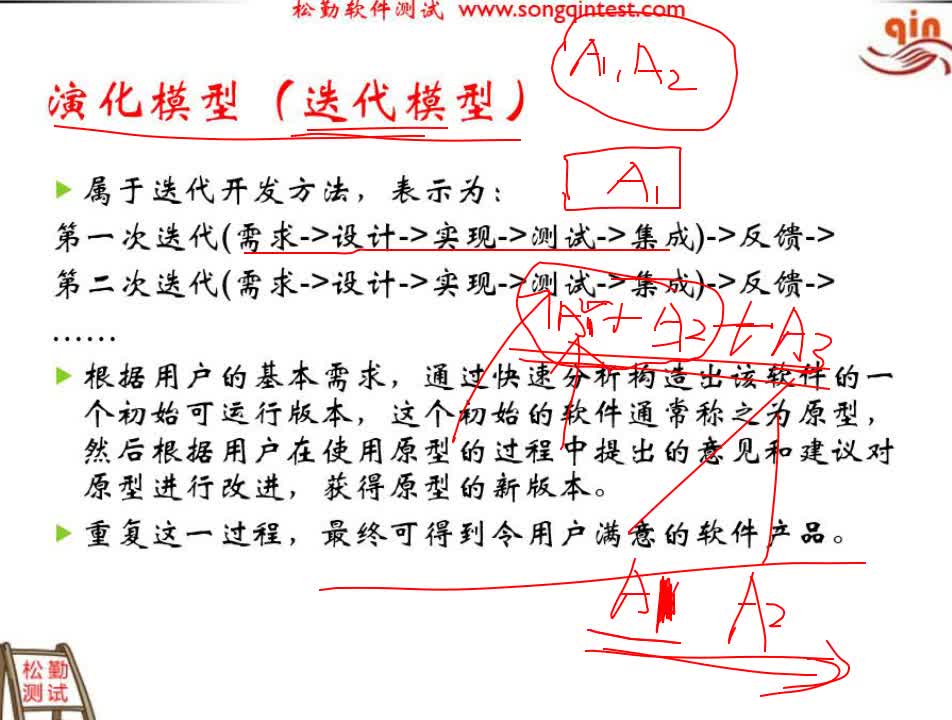 松勤软件测试 www.songqintest.com
qin
演化模型（迭代模型）
A1, A2
属于迭代开发方法，表示为：
A1
第一次迭代(需求->设计->实现->测试->集成)->反馈->
第二次迭代(需求->设计->实现->测试->集成)->反馈->
+ A2 + A3
……
根据用户的基本需求，通过快速分析构造出该软件的一
个初始可运行版本，这个初始的软件通常称之为原型，
然后根据用户在使用原型的过程中提出的意见和建议对
原型进行改进，获得原型的新版本。
重复这一过程，最终可得到令用户满意的软件产品。
A A2
松勤
测试